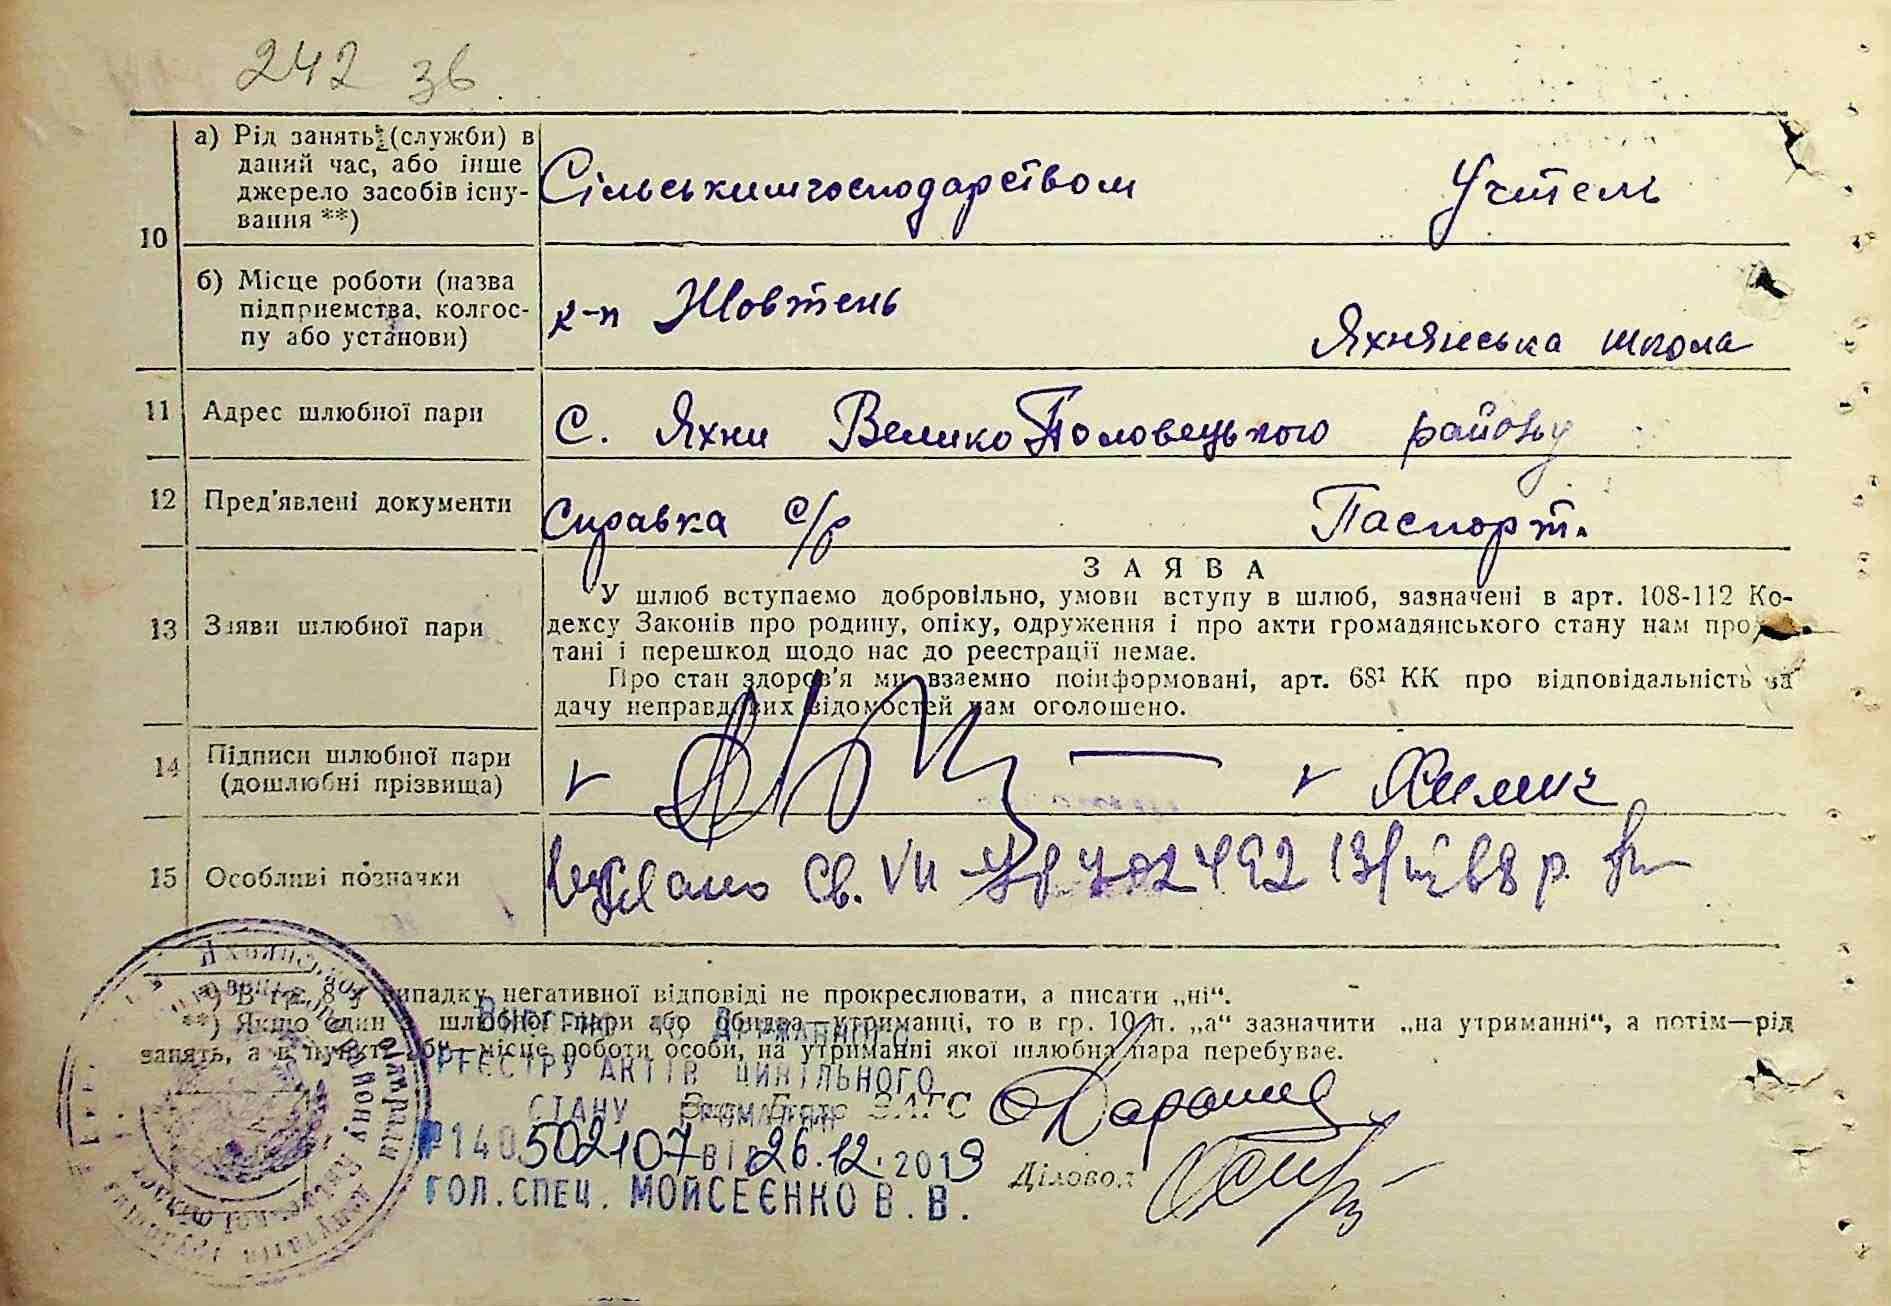 242 зв.
10
а) Рід занять (служби) в
даний час, або інше
джерело засобів існу-
вання **)
Сільським господарством
Учитель
б) Місце роботи (назва
підприємства, колгос-
пу або установи)
к-п Жовтень
Яхнянська школа
11
Адрес шлюбної пари
С. Яхни Велико Половецького району
12
Пред'явлені документи
Справка с/р
Паспорт.
13
Заяви шлюбної пари
ЗАЯВА
У шлюб вступаємо добровільно, умови вступу в шлюб, зазначені в арт. 108-112 Ко-
дексу Законів про родину, опіку, одруження і про акти громадянського стану нам про
тані і перешкод щодо нас до реєстрації немає.
Про стан здоров'я ми взаємно поінформовані, арт. 68¹ КК про відповідальність за
дачу неправдивих відомостей нам оголошено.
14
Підписи шлюбної пари
(дошлюбні прізвища)
15
Особливі позначки
Св. VII 13 88 р.
*) В гр. 8 у випадку негативної відповіді не прокреслювати, а писати „ні“.
**) Якщо один з шлюбної пари або обидва—утриманці, то в гр. 10 п. „а“ зазначити „на утриманні“, а потім—рід
занять, а в пункті „б“—місце роботи особи, на утриманні якої шлюбна пара перебуває.
ВНЕСЕНО ДО ДЕРЖАВНОГО
РЕЄСТРУ АКТІВ ЦИВІЛЬНОГО
СТАНУ ГРОМАДЯН
Зав. Бюро ЗАГС
№140 502107 ВІД 26.12.2019
Діловод
ГОЛ.СПЕЦ. МОЙСЕЄНКО В.В.